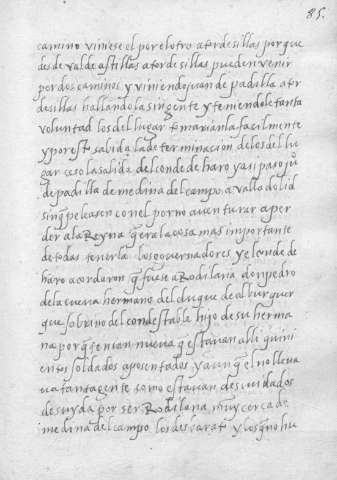 85.
camino viniese el por el otro a tordesillas porque
desde valdeastillas a tordesillas pueden venir
por dos caminos, y viniendo juan de padilla a tor
desillas hallandola sin gente y teniendole tanta
voluntad los del lugar tomarianla facilmente
y por est sabida la determinacion de los del lu
gar ceso la salida del conde de haro y asi paso ju
de padilla de medina del campo, a valladolid
sin q peleasen con el por no aventurar a per
der a la Reyna q era la cosa mas importante
de todas tenerla los governadores y el conde de
haro acordaron q fuese a Rodilana don pedro
de la cueva hermano del duque de alburquer
que sobrino del condestable hijo de su herma
na porq tenian nueva q estavan alli quini
entos soldados aposentados y aun q el no lleva
va tanta gente como estavan descuidados
de su yda por ser Rodilana, muy cerca de
medina del campo los desbarat y los q no hu